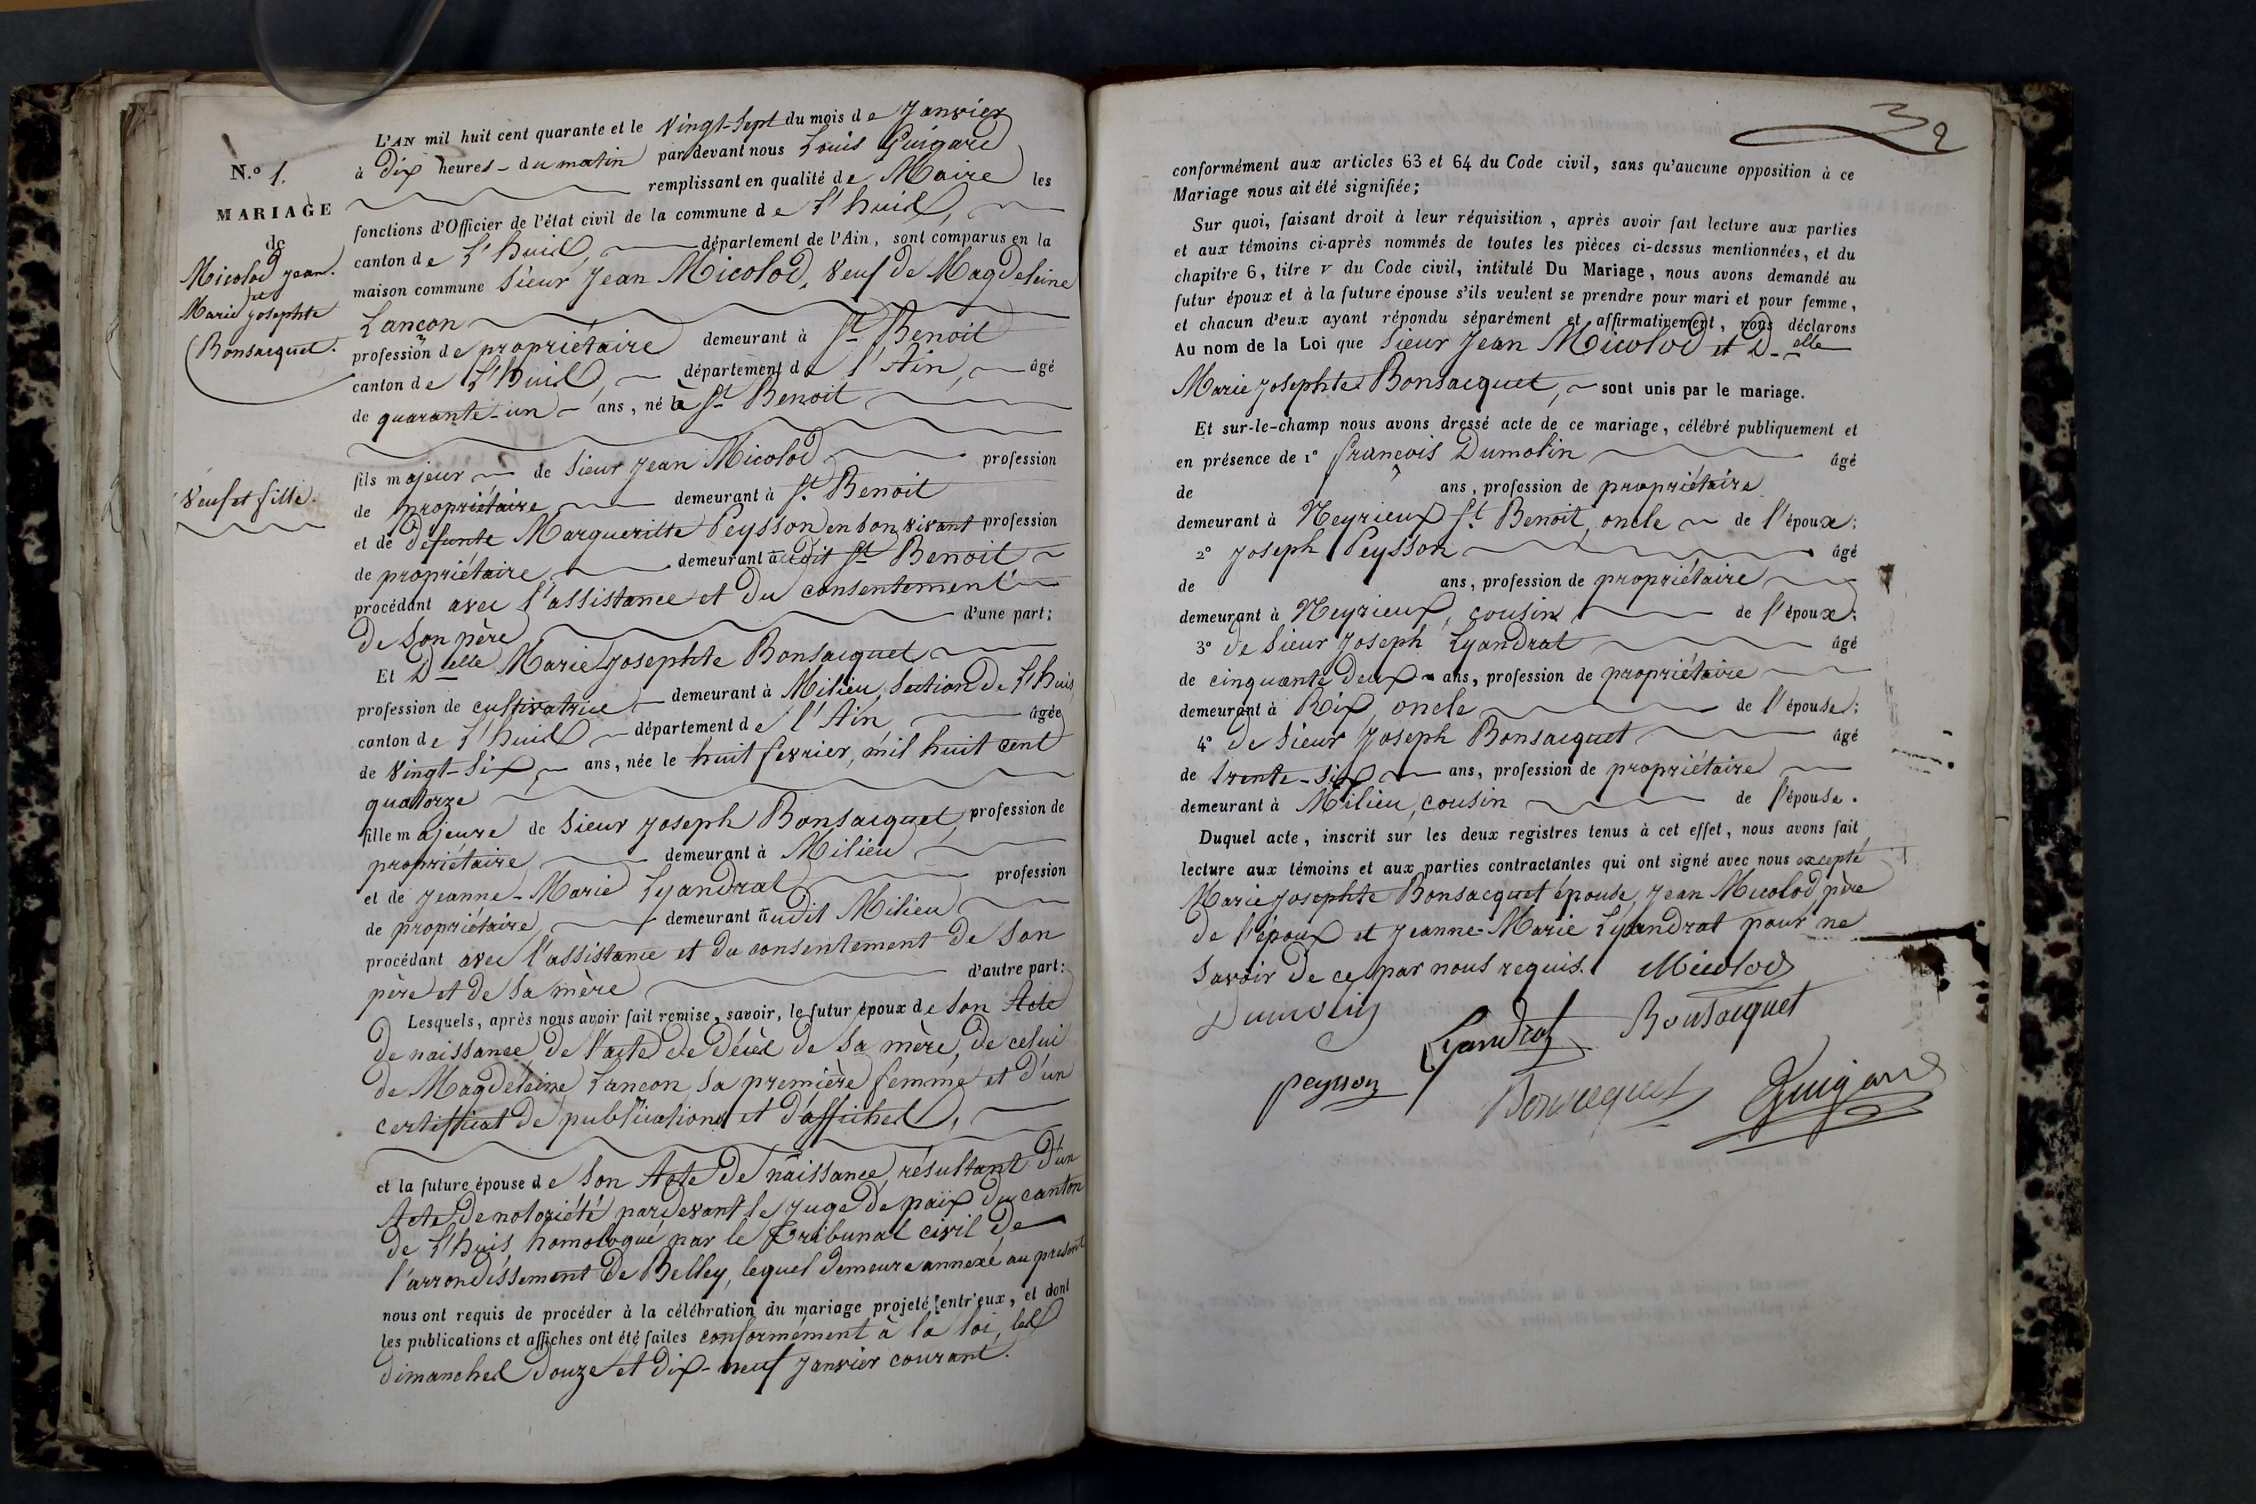 N.o 1.
MARIAGE
de
Micolod Jean.
et
Marie Josephte
Bonsacquet.
Veuf et fille.
L'AN mil huit cent quarante et le Vingt-Sept du mois de Janvier
à Dix heures - du matin pardevant nous Louis Guigard
remplissant en qualité de Maire les
fonctions d'Officier de l'état civil de la commune de L'huis,
canton de L'huis, département de l'Ain, sont comparus en la
maison commune Sieur Jean Micolod, Veuf de Magdeleine
Lançon
profession de propriétaire demeurant à St Benoit
canton de L'huis, département de l'Ain, âgé
de quarante-un ans, né à St Benoit
fils majeur de Sieur Jean Micolod profession
de propriétaire demeurant à St Benoit
et de défunte Margueritte Peysson en son vivant profession
de propriétaire demeurant audit St Benoit
procédant avec l'assistance et du consentement
de Son père d'une part;
Et Delle Marie Josephte Bonsacquet
profession de cultivatrice demeurant à Milieu, Section de L'huis
canton de L'huis département de l'Ain âgée
de Vingt-Six, ans, née le huit février, mil huit cent
quatorze
fille majeure de Sieur Joseph Bonsacquet, profession de
propriétaire demeurant à Milieu
et de Jeanne-Marie Lyandrat profession
de propriétaire demeurant audit Milieu
procédant avec l'assistance et du consentement de Son
père et de Sa mère d'autre part:
Lesquels, après nous avoir fait remise, savoir, le futur époux de Son Acte
de naissance, de l'acte de Décès de Sa mère, de celui
de Magdeleine Lançon Sa première femme et d'un
certifficat de publications et d'affiches,
et la future épouse de Son Acte de naissance, résultant d'un
Acte de notoriété pardevant le Juge de paix du canton
de L'huis, homologué par le Tribunal civil de
l'arrondissement de Belley, lequel demeure annexé au présent
nous ont requis de procéder à la célébration du mariage projeté entr'eux, et dont
les publications et affiches ont été faites conformément à la loi, les
dimanches Douze et Dix-neuf Janvier courant.
32
conformément aux articles 63 et 64 du Code civil, sans qu'aucune opposition à ce
Mariage nous ait été signifiée;
Sur quoi, faisant droit à leur réquisition, après avoir fait lecture aux parties
et aux témoins ci-après nommés de toutes les pièces ci-dessus mentionnées, et du
chapitre 6, titre V du Code civil, intitulé Du Mariage, nous avons demandé au
futur époux et à la future épouse s'ils veulent se prendre pour mari et pour femme,
et chacun d'eux ayant répondu séparément et affirmativement, nous déclarons
Au nom de la Loi que Sieur Jean Micolod et D-elle
Marie Josephte Bonsacquet, sont unis par le mariage.
Et sur-le-champ nous avons dressé acte de ce mariage, célébré publiquement et
en présence de 1° françois Dumolin âgé
de ans, profession de propriétaire
demeurant à Neyrieux St Benoit, oncle de l'époux;
2° Joseph Peysson âgé
de ans, profession de propriétaire
demeurant à Neyrieux, cousin de l'époux;
3° de Sieur Joseph Lyandrat âgé
de cinquante Deux ans, profession de propriétaire
demeurant à Rix, oncle de l'épouse;
4° de Sieur Joseph Bonsacquet âgé
de trente-Six ans, profession de propriétaire
demeurant à Milieu, cousin de l'épouse.
Duquel acte, inscrit sur les deux registres tenus à cet effet, nous avons fait
lecture aux témoins et aux parties contractantes qui ont signé avec nous excepté
Marie Josephte Bonsacquet épouse, Jean Micolod, père
de l'époux et Jeanne-Marie Lyandrat pour ne
Savoir de ce par nous requis. Micolod
Dumolin
Lyandrat Bonsacquet
peysson Bonsacquet Guigard